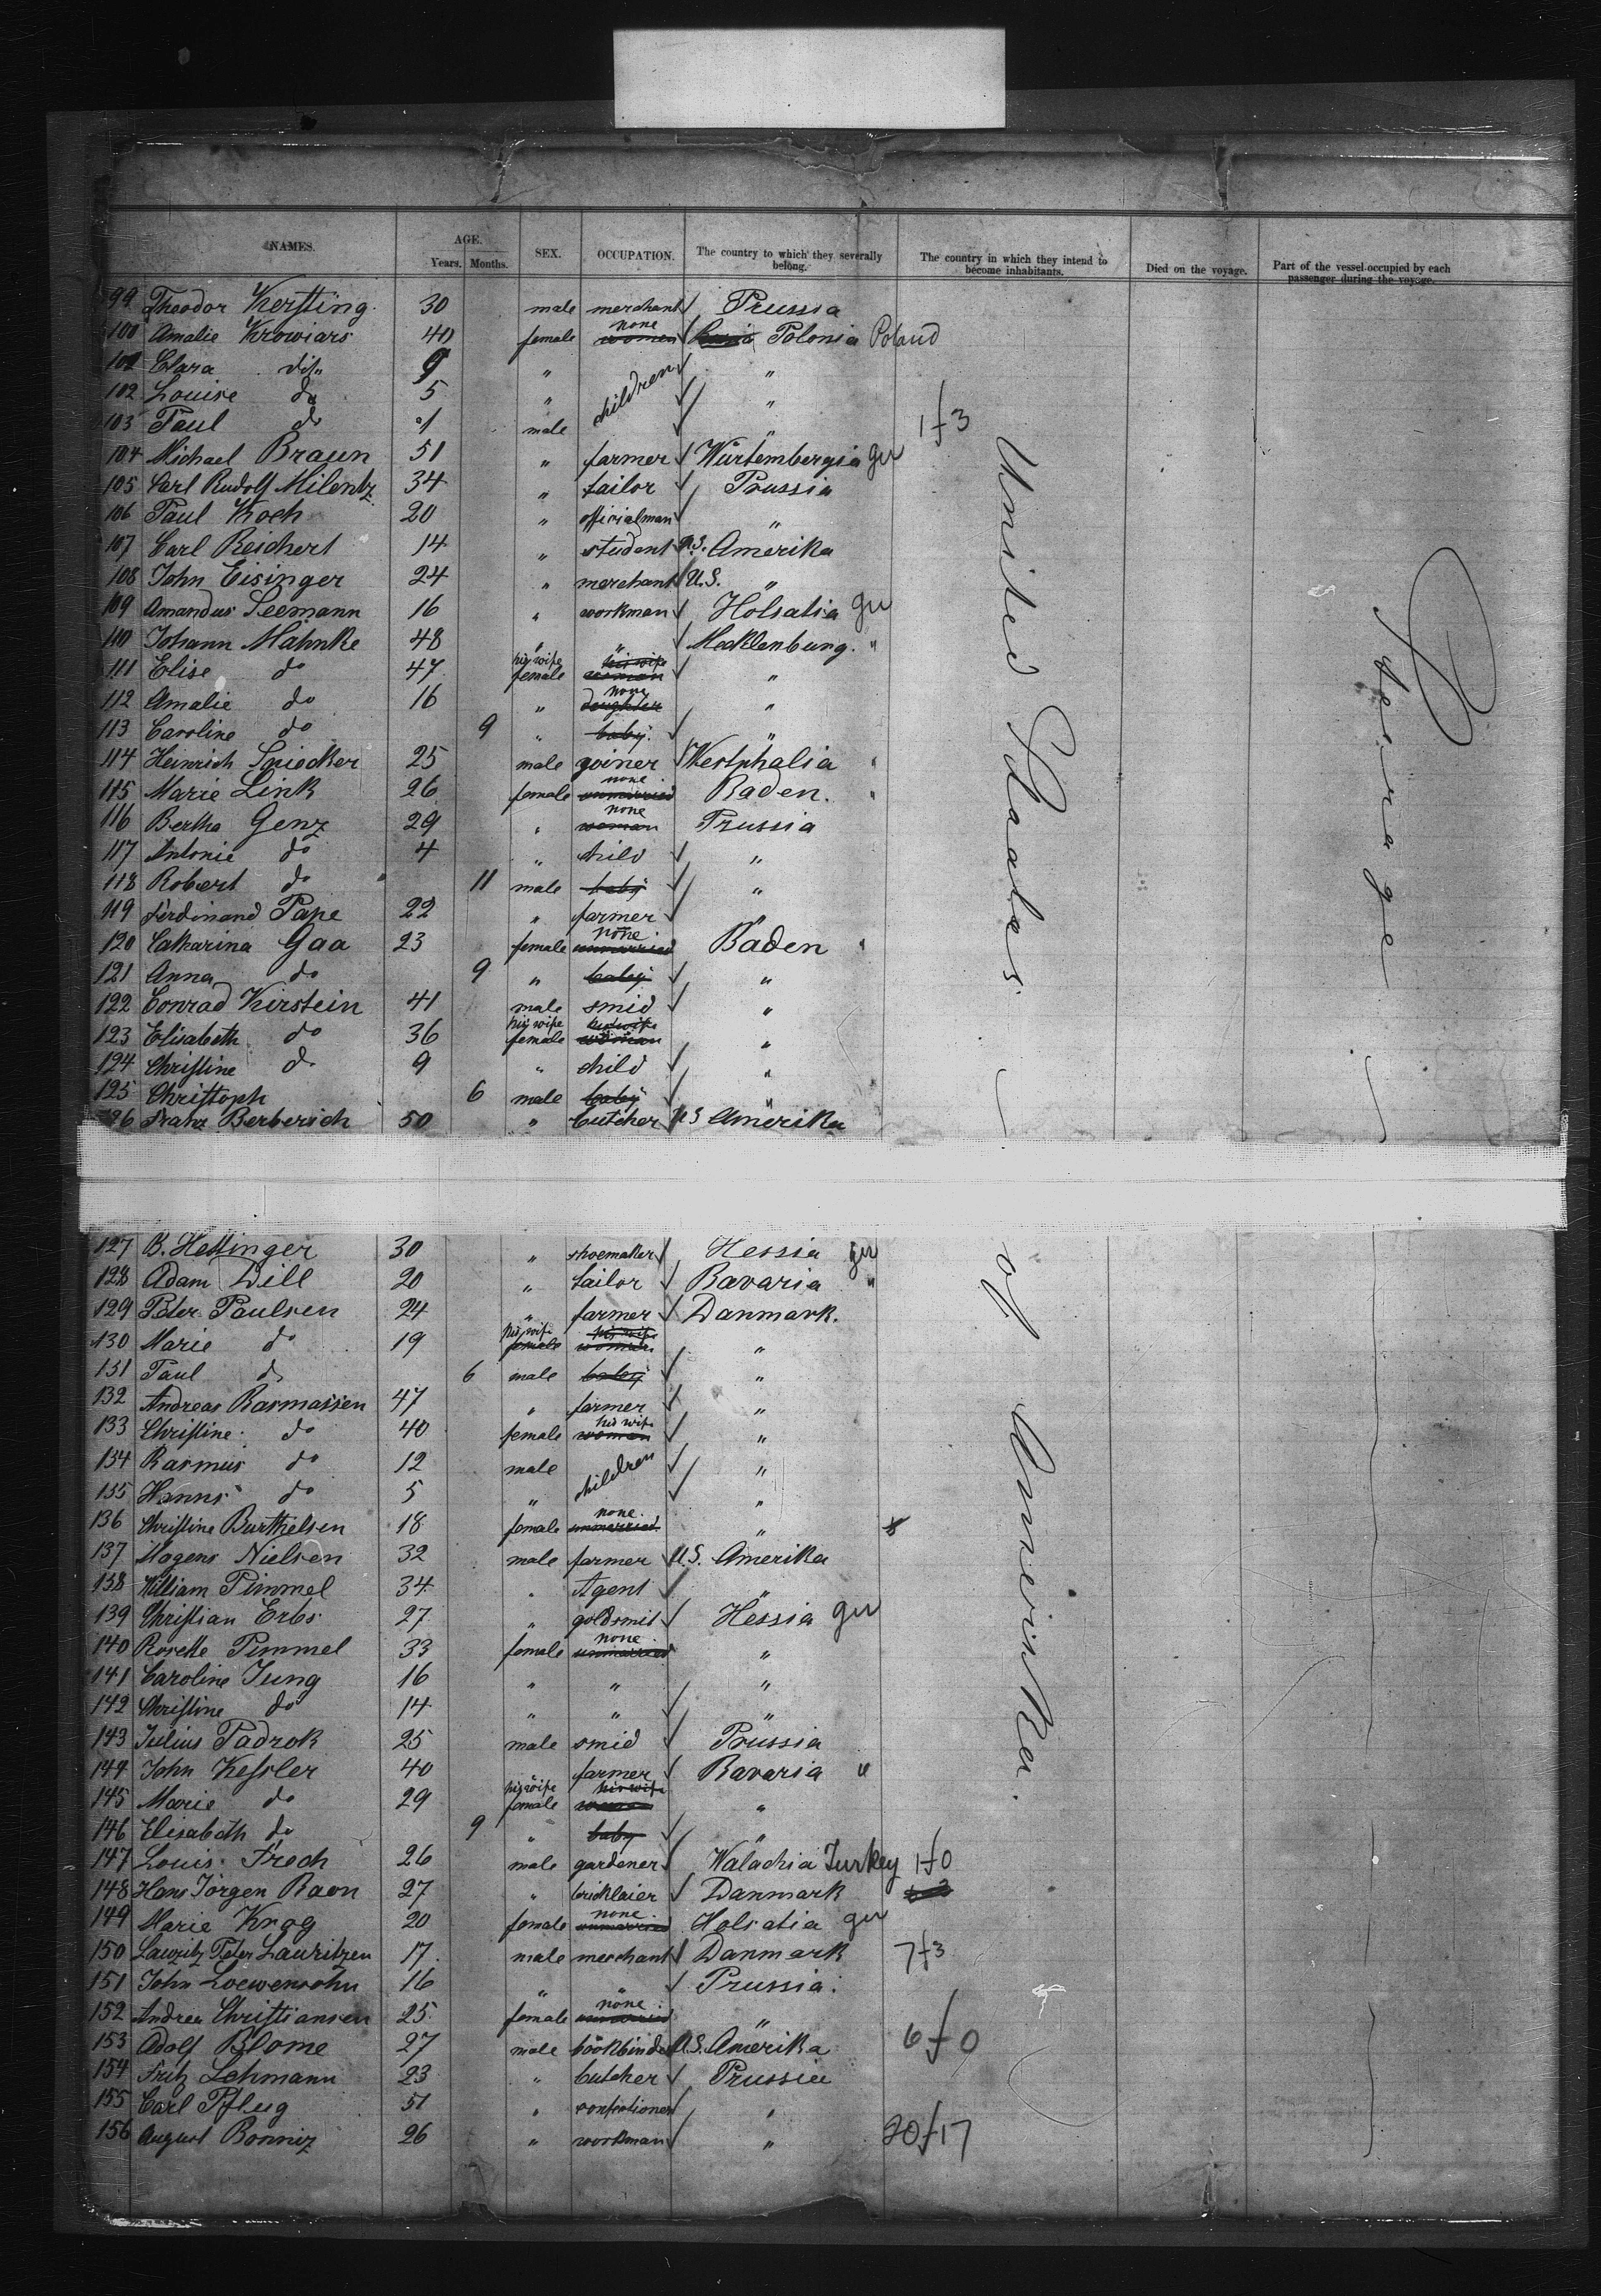 NAMES. AGE. Years. Months. SEX. OCCUPATION. The country to which they severally belong. The country in which they intend to become inhabitants. Died on the voyage. Part of the vessel occupied by each passenger during the voyage.
99 Theodor Kersting 30 male merchant Prussia
100 Amalie Krowiars 40 female none women Polonia Poland
101 Clara 9 " children "
102 Louise do 5 " "
103 Paul do 1 male " 1f3
104 Michael Braun 51 " farmer Würtembergia
105 Carl Rudolf Milentz 34 " tailor Prussia
106 Paul Koch 20 " officialman "
107 Carl Reichert 14 " student U.S. Amerika
108 John Eisinger 24 " merchant U.S. "
109 Amandus Seemann 16 " workman Holsatia
110 Johann Mähnke 48 " " Mecklenburg "
111 Elise do 47 his wife female his wife woman "
112 Amalie do 16 " none daughter "
113 Caroline do 9 " baby "
114 Heinrich Sniedker 25 male joiner Westphalia "
115 Marie Link 26 female none unmarried Baden "
116 Bertha Genz 29 " none woman Prussia
117 Antonie do 4 " child "
118 Robert do 11 male baby "
119 Ferdinand Pape 22 " farmer "
120 Catharina Gaa 23 female none unmarried Baden "
121 Anna do 9 " baby "
122 Conrad Kirstein 41 male smid "
123 Elisabeth do 36 his wife female his wife woman "
124 Christine do 9 " child "
125 Christoph 6 male baby "
126 Franz Berberich 50 " butcher US Amerika
127 B. Hettinger 30 " shoemaker Hessia
128 Adam Dill 20 " tailor Bavaria "
129 Peter Paulsen 24 " farmer Danmark.
130 Marie do 19 his wife female his wife woman "
131 Paul do 6 male baby "
132 Andreas Rasmassen 47 " farmer "
133 Christine do 40 female his wife woman "
134 Rasmus do 12 male children "
135 Hanns do 5 " "
136 Christine Burthelsen 18 female none unmarried "
137 Mogens Nielsen 32 male farmer U.S. Amerika
138 William Pimmel 34 " Agent "
139 Christian Erbs 27 " goldsmit Hessia
140 Rosette Pimmel 33 female none unmarried "
141 Caroline Jung 16 " " "
142 Christine do 14 " " "
143 Julius Padrok 25 male smid Prussia
144 John Kessler 40 " farmer Bavaria "
145 Marie do 29 his wife female his wife woman "
146 Elisabeth do 9 " baby "
147 Louis Froch 26 male gardener Walachia Turkey 1f0
148 Hans Jörgen Raon 27 " bricklaier Danmark
149 Marie Krog 20 female none unmarried Holsatia
150 Lauritz Peter Lauritzen 17 male merchant Danmark 7f3
151 John Loewensohn 16 " " Prussia.
152 Andrea Christiansen 25 female none unmarried "
153 Adolf Blome 27 male bookbinder U.S. Amerika 6f0
154 Fritz Lehmann 23 " butcher Prussia
155 Carl Pflug 51 " confectioner "
156 August Bonniz 26 " workman " 20f17
United Staates
of Amerika.
Steerage